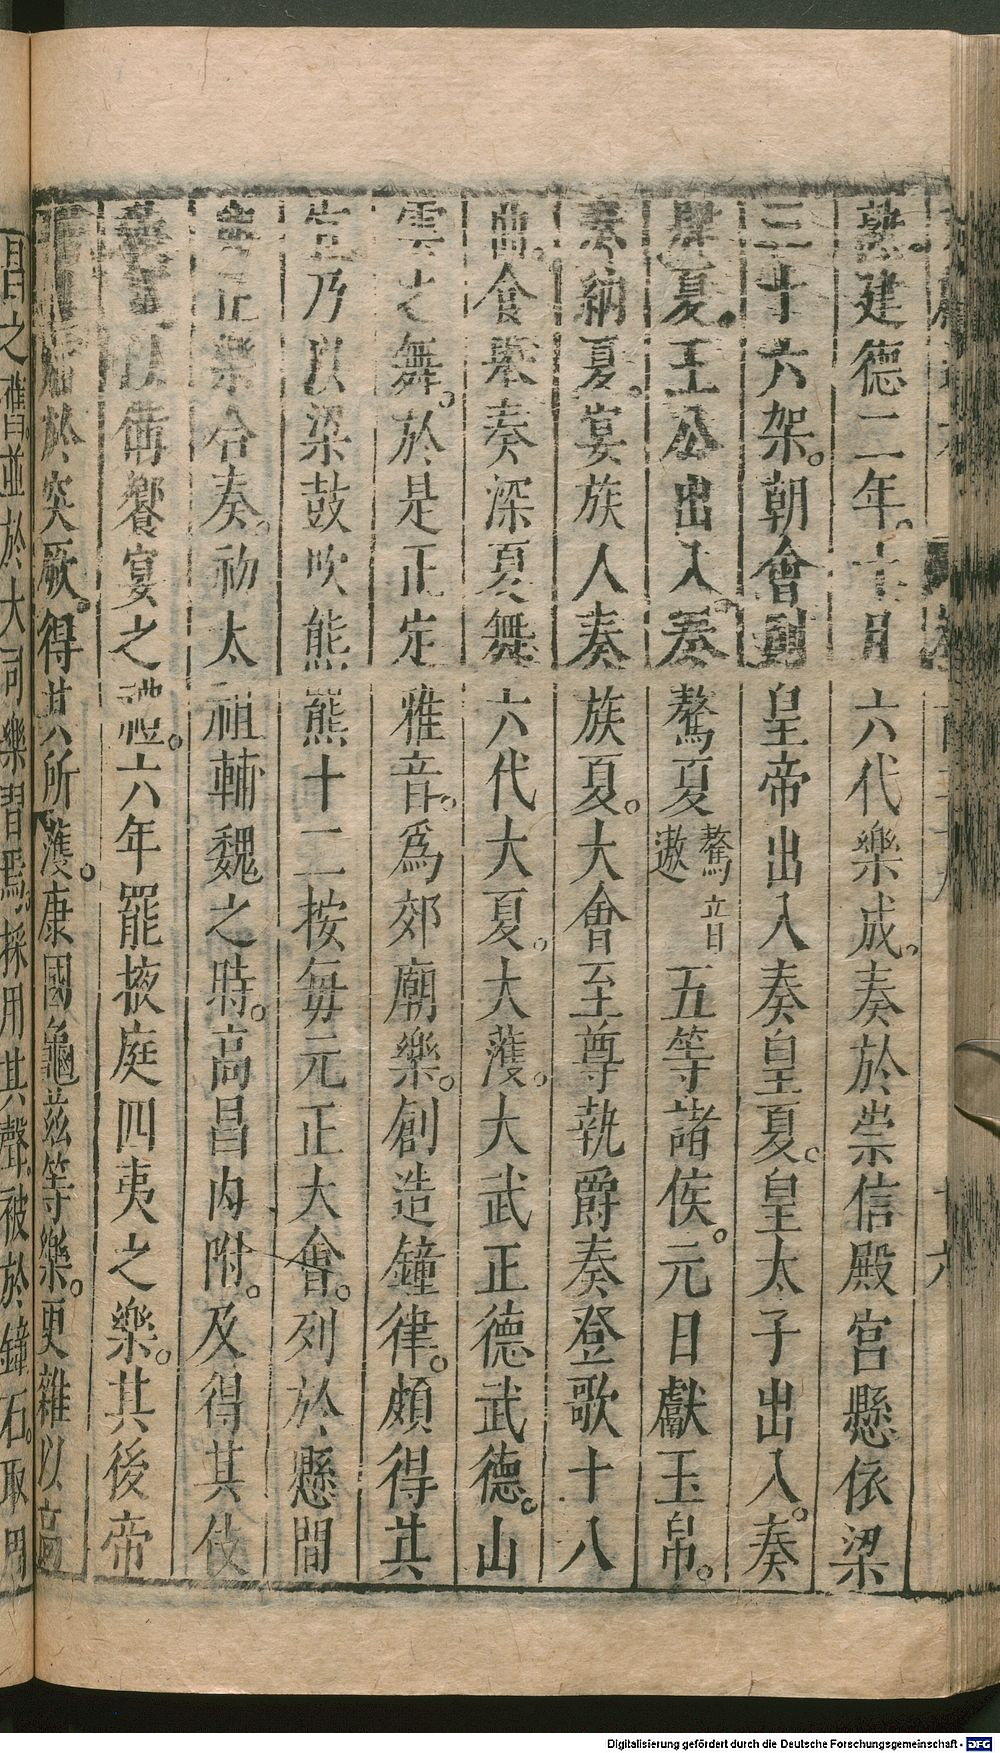 熟。建德二年。十月六代樂成。奏於崇信殿宮懸依梁
三十六架。朝會則皇帝出入奏皇夏。皇太子出入。奏
肆夏。王公出入。奏驁夏驁音遨五等諸侯。元日獻玉帛。
奏納夏。宴族人奏族夏。大會至尊執爵奏登歌十八
曲。食舉奏深夏舞六代大夏。大濩。大武正德武德。山
雲之舞。於是正定雅音。爲郊廟樂。創造鐘律。頗得其
宜乃以梁鼓吹熊羆十二按每元正大會。列於懸間
與正樂合奏。初太祖輔魏之時。高昌內附。及得其伎
以備饗宴之禮。六年罷掖庭四夷之樂。其後帝
於突厥。得其所濩。康國龜茲等樂。更雜以高
昌之舊。並於大司樂習焉。採用其聲。被於鐘石。取周
Digitalisierung gefördert durch die Deutsche Forschungsgemeinschaft - DFG